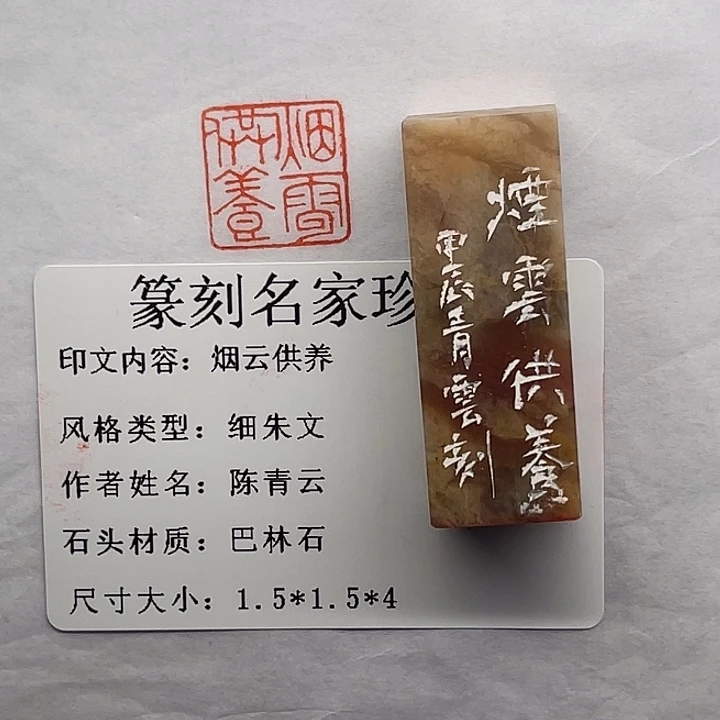 烟雲供養
篆刻名家珍
印文内容：烟云供养
风格类型：细朱文
作者姓名：陈青云
石头材质：巴林石
尺寸大小：1.5*1.5*4
煙雲供養
甲辰青雲刻